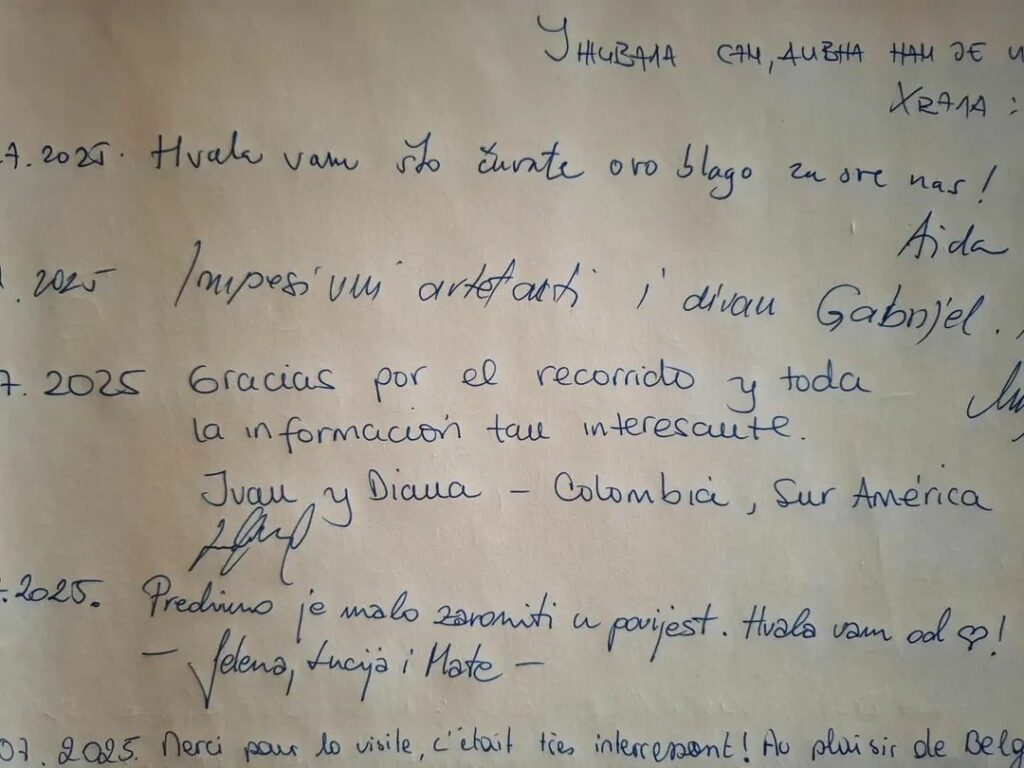 Уживала сам, дивна нам је и
Хвала :
7.2025. Hvala vam što čuvate ovo blago za sve nas!
Aida
. 2025 Impesivni artefakti i divan Gabrijel.
7. 2025 Gracias por el recorrido y toda
la información tan interesante.
Ivan y Diana – Colombia, Sur América
.2025. Predivno je malo zaroniti u povijest. Hvala vam od ♡!
– Jelena, Lucija i Mate –
07. 2025. Merci pour la visite, c'était très interressant! Au plaisir de Belg